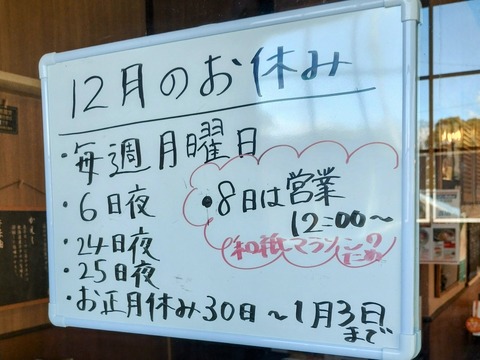 12月のお休み
・毎週月曜日
・6日夜
・24日夜
・25日夜
・お正月休み30日〜1月3日まで
・8日は営業
12:00〜
和紙マラソンのため